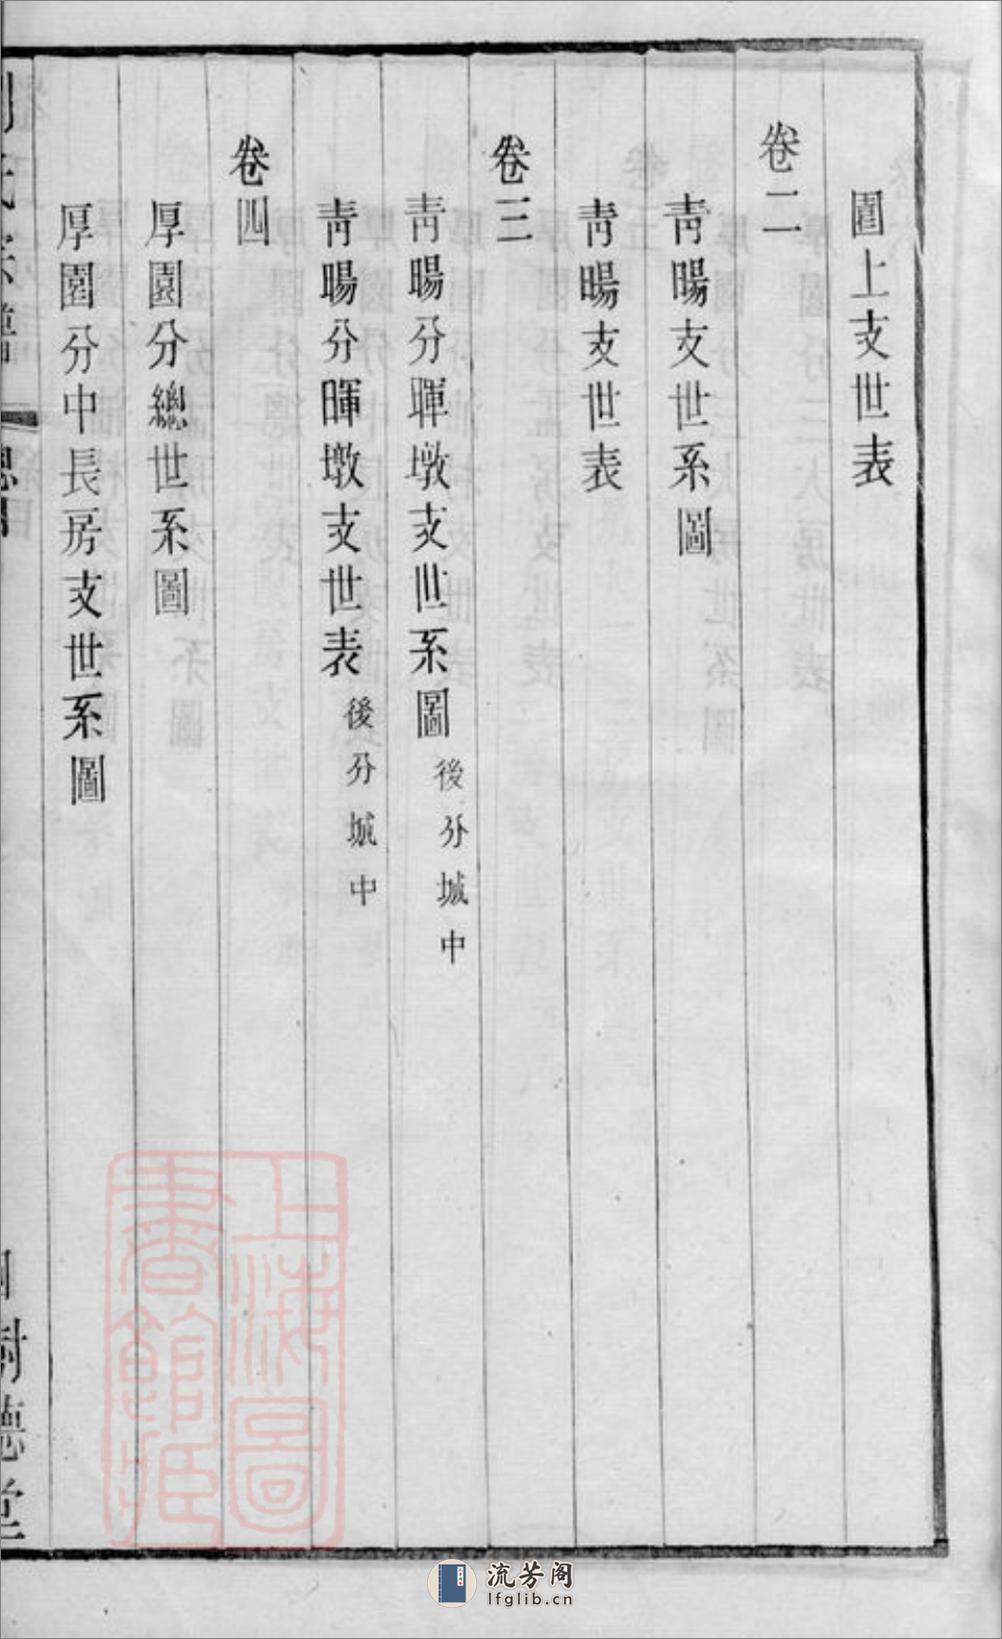 圍上支世表
卷二
靑暘支世系圖
靑暘支世表
卷三
靑暘分暉墩支世系圖 後分城中
靑暘分暉墩支世表 後分城中
卷四
厚園分總世系圖
厚園分中長房支世系圖
樹德堂
上海圖書館藏
流芳阁
lfglib.cn